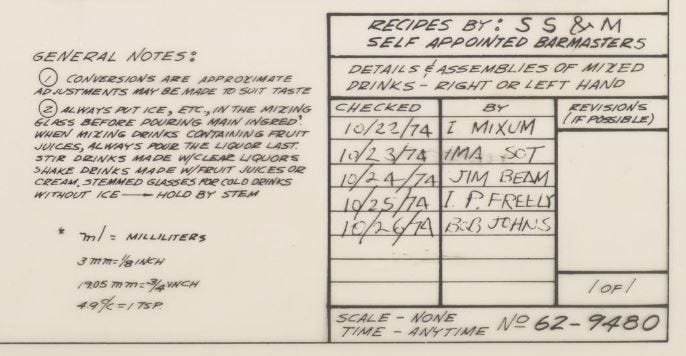 GENERAL NOTES:
① CONVERSIONS ARE APPROXIMATE
ADJUSTMENTS MAY BE MADE TO SUIT TASTE
② ALWAYS PUT ICE, ETC., IN THE MIXING
GLASS BEFORE POURING MAIN INGRED'.
WHEN MIXING DRINKS CONTAINING FRUIT
JUICES, ALWAYS POUR THE LIQUOR LAST.
STIR DRINKS MADE W/CLEAR LIQUORS
SHAKE DRINKS MADE W/FRUIT JUICES OR
CREAM, STEMMED GLASSES FOR COLD DRINKS
WITHOUT ICE — HOLD BY STEM
* ml = MILLILITERS
3 mm = 1/8 INCH
19.05 mm = 3/4 INCH
4.9 % = 1 TSP.
RECIPES BY: S S & M
SELF APPOINTED BARMASTERS
DETAILS & ASSEMBLIES OF MIXED
DRINKS - RIGHT OR LEFT HAND
CHECKED BY REVISIONS
(IF POSSIBLE)
10/22/74 I MIXUM
10/23/74 IMA SOT
10/24/74 JIM BEAM
10/25/74 I. P. FREELY
10/26/74 BOB JOHNS
1 OF 1
SCALE - NONE
TIME - ANYTIME
Nº 62-9480